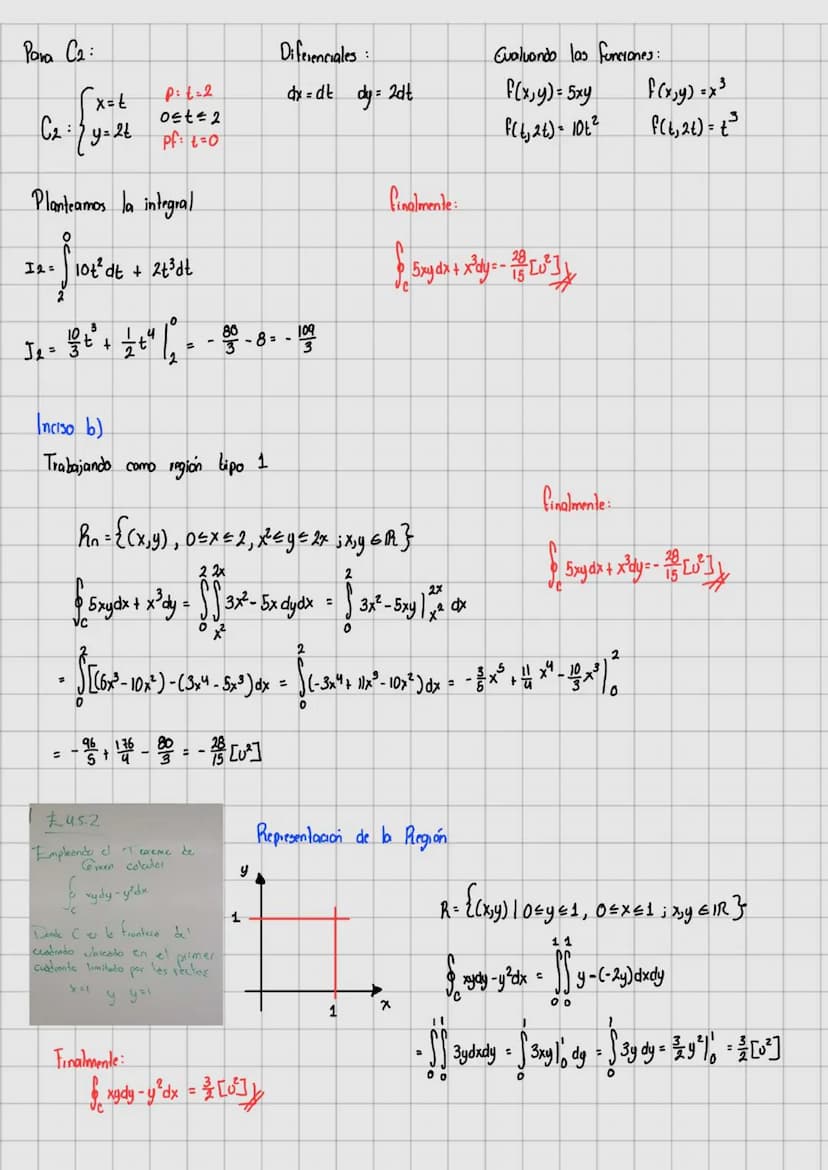 Para C₂:
Diferenciales:
Evaluando las funciones:
C₂: { x=t
y=2t
p: t=2
0≤t≤2
pf: t=0
dx=dt dy=2dt
f(x,y)=5xy f(x,y)=x³
f(t,2t)=10t² f(t,2t)=t³
Planteamos la integral
I₂ = ∫₂⁰ 10t²dt + 2t³dt
I₂ = 10/3 t³ + 1/2 t⁴ |₂⁰ = - 80/3 - 8 = - 109/3
finalmente:
∮c 5xydx + x³dy = - 28/15 [u²]
Inciso b)
Trabajando como región tipo 1
Rn = {(x,y), 0≤x≤2, x²≤y≤2x ; x,y ∈ ℝ}
∮c 5xydx + x³dy = ∫₀² ∫ₓ²²ˣ 3x² - 5x dydx = ∫₀² 3x² - 5xy |ₓ²²ˣ dx
= ∫₀² [(6x³ - 10x²) - (3x⁴ - 5x³)dx = ∫₀² (-3x⁴ + 11x³ - 10x²)dx = - 3/5 x⁵ + 11/4 x⁴ - 10/3 x³ |₀²
= - 96/5 + 176/4 - 80/3 = - 28/15 [u²]
finalmente:
∮c 5xydx + x³dy = - 28/15 [u²]
E 4.5.2
Empleando el Teorema de
Green calcular
∮c xydy - y²dx
Donde C es la frontera del
cuadrado ubicado en el primer
cuadrante limitado por las rectas
x=1 y y=1
Representación de la Región
y
1
1
x
R = {(x,y) | 0≤y≤1, 0≤x≤1 ; x,y ∈ ℝ}
∮c xydy - y²dx = ∫₀¹ ∫₀¹ y - (-2y)dxdy
= ∫₀¹ ∫₀¹ 3ydxdy = ∫₀¹ 3xy |₀¹ dy = ∫₀¹ 3y dy = 3/2 y² |₀¹ = 3/2 [u²]
Finalmente:
∮c xydy - y²dx = 3/2 [u²]